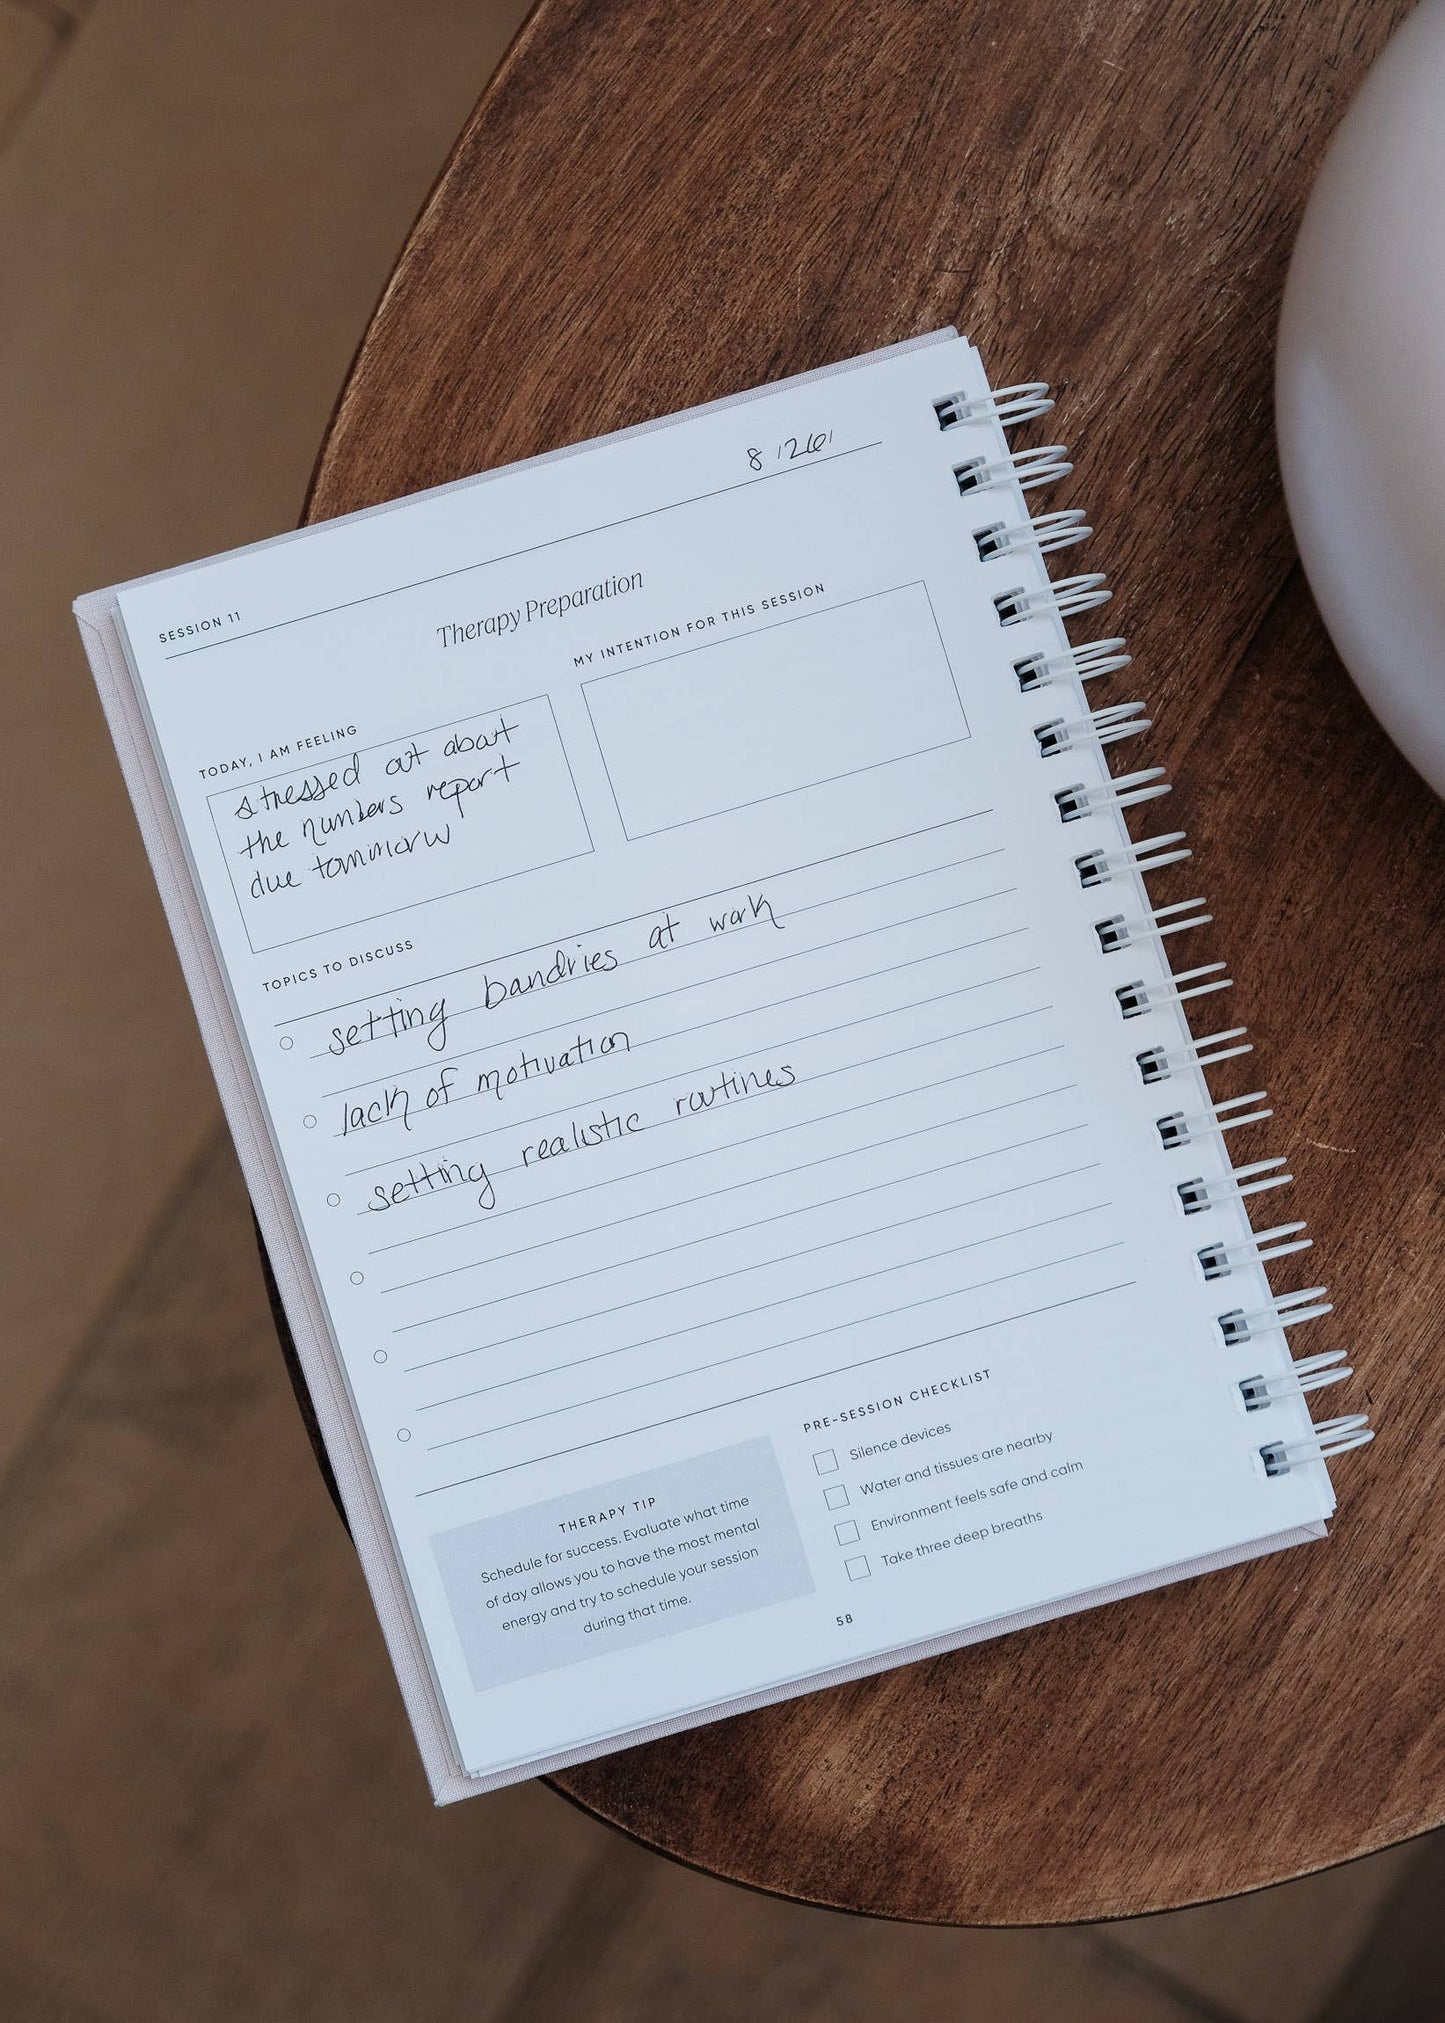 8/26/
SESSION 11
Therapy Preparation
TODAY, I AM FEELING
stressed out about
the numbers report
due tommorw
MY INTENTION FOR THIS SESSION
TOPICS TO DISCUSS
setting bandries at work
lack of motivation
setting realistic routines
THERAPY TIP
Schedule for success. Evaluate what time
of day allows you to have the most mental
energy and try to schedule your session
during that time.
PRE-SESSION CHECKLIST
Silence devices
Water and tissues are nearby
Environment feels safe and calm
Take three deep breaths
58